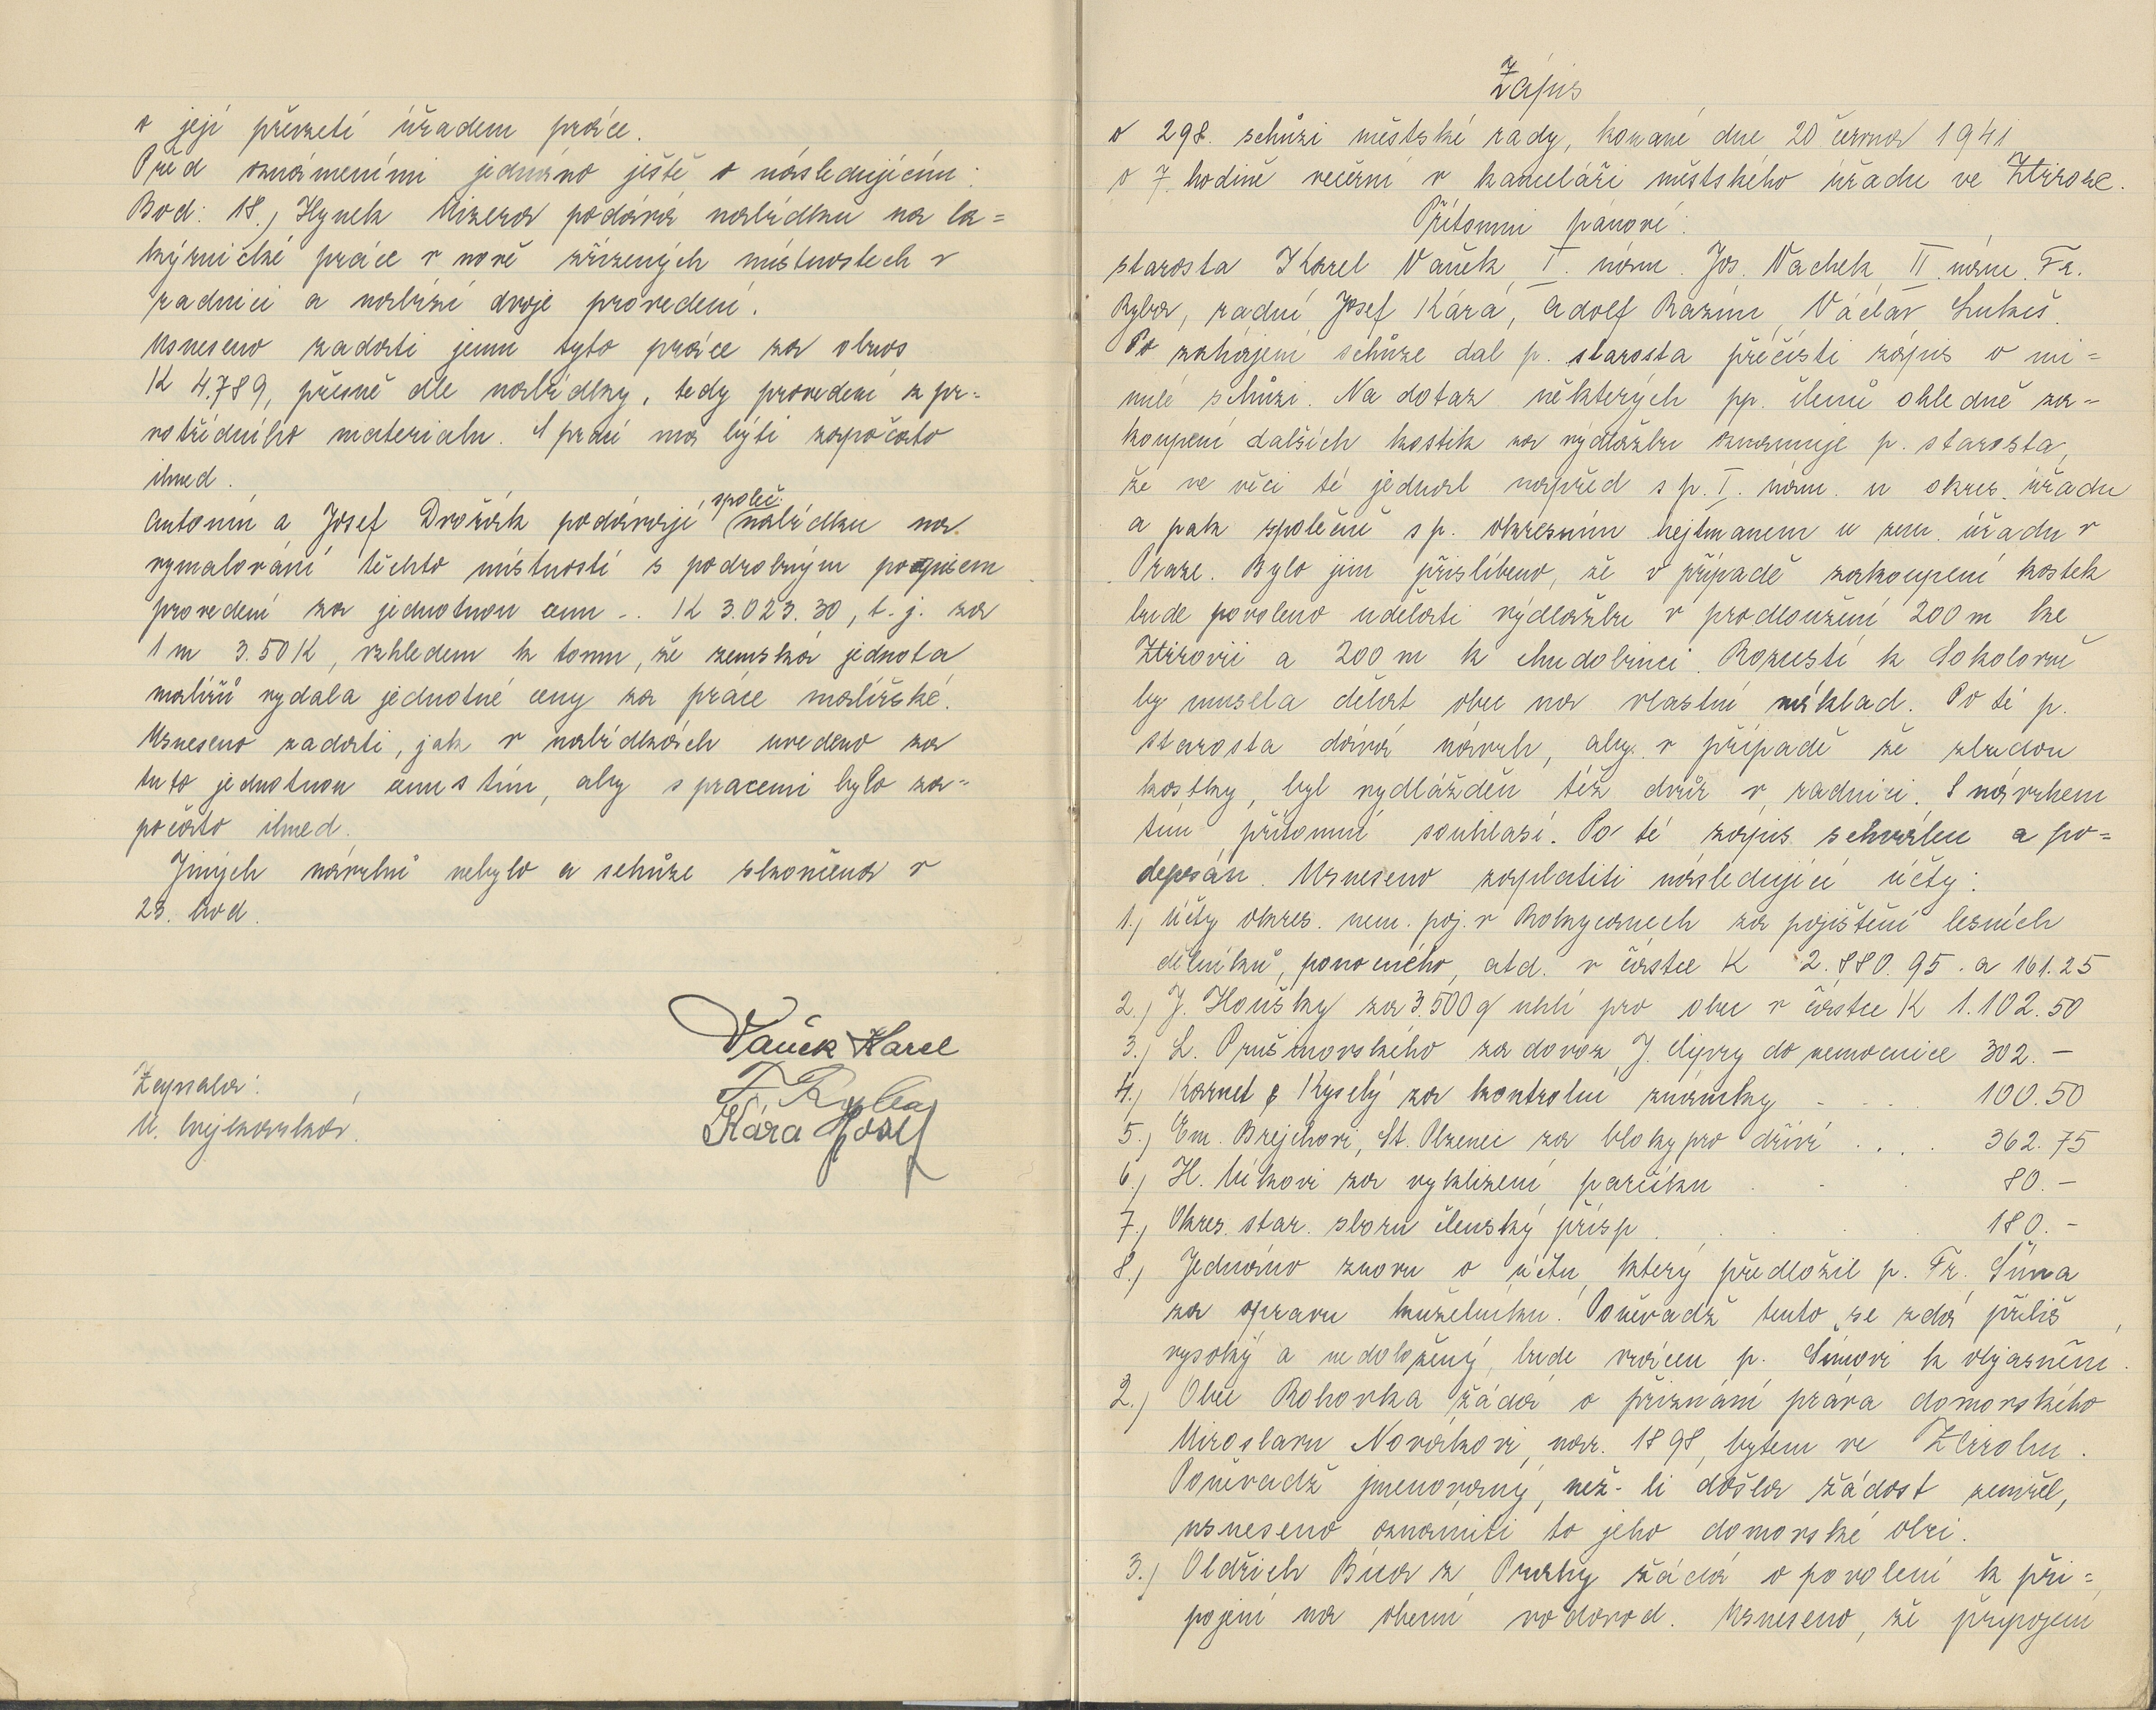 o její převzetí úřadem práce.
Před oznámeními jednáno ještě o následujícím:
Bod: 18., Hynek Mizera podává nabídku na la=
kýrnické práce v nově zřízených místnostech v
radnici a nabízí dvoje provedení.
Usneseno zadati jemu tyto práce za obnos
K 4.789, přesně dle nabídky, tedy provedení z pr-
votřídního materialu. S prací má býti započato
ihned.
Antonín a Josef Dvořák podávají společ. nabídku na
vymalování těchto místností s podrobným popisem
provedení za jednotnou cenu -. K 3.023.30, t. j. za
1 m 3.50 K, vzhledem k tomu, že zemská jednota
malířů vydala jednotné ceny za práce malířské.
Usneseno zadati, jak v nabídkách uvedeno za
tuto jednotnou cenu s tím, aby s pracemi bylo za-
počato ihned.
Jiných návrhů nebylo a schůze skončena v
23. hod.
Vaněk Karel
F. Ryba
Kára Josef
Zapsala:
M.
Zápis
o 298. schůzi městské rady, konané dne 20 června 1941
o 7. hodině večerní v kanceláři městského úřadu ve Zbiroze.
Přítomni pánové:
starosta Karel Vaněk, I. nám. Jos. Vachek, II. nám. Fr.
Ryba, radní Josef Kára, Adolf Razím, Václav Lukeš.
Po zahájení schůze dal p. starosta přečísti zápis o mi=
nulé schůzi. Na dotaz některých pp. členů ohledně za-
koupení dalších kostik za výdlažbu oznamuje p. starosta,
že ve věci té jednal napřed s p. I. nám. u okres. úřadu
a pak společně s p. okresním hejtmanem u zem. úřadu v
Praze. Bylo jim přislíbeno, že v případě zakoupení kostek
bude povoleno udělati výdlažbu v prodloužení 200 m ke
Zbirovii a 200 m k chudobinci. Rozcestí k Sokolovně
by musela dělat obec na vlastní náklad. Po té p.
starosta dává návrh, aby v případě že zbudou
kostky, byl vydlážděn též dvůr v radnici. S návrhem
tím přítomní souhlasí. Po té zápis schválen a po=
depsán. Usneseno zaplatiti následující účty:
1., Účty okres. nem. poj. v Rokycanech za pojištění lesních
dělníků, ponocného, atd. v částce K 2.880.95. a 161.25
2., J. Houšky za 3.500 q uhlí pro obec v částce K 1.102.50
3., L. Prušinovského za dovoz J. do nemocnice 302.-
4., Karnet & Kyselý za kontrolní známky - - . 100.50
5., Em. Brejchovi, St. Plzenec za bloky pro dříví . . . . 362.75
6., H. Míkovi za vyklizení parčíku . - . 80.-
7., Okres. star. sboru členský přísp. . . . . 180.-
8., Jednáno znovu o účtu, který předložil p. Fr. Šíma
za opravu kuželníku. Poněvadž tento se zdá příliš
vysoký a nedoložený, bude vrácen p. Šímovi k objasnění.
2., Obec Bohovka žádá o přiznání práva domovského
Miroslavu Novákovi, nar. 1898, bytem ve Zbirohu.
Poněvadž jmenovaný, než-li došla žádost zemřel,
usneseno oznámiti to jeho domovské obci.
3., Oldřich Bíca z Prahy žádá o povolení k při=
pojení na obecní vodovod. Usneseno, že připojení